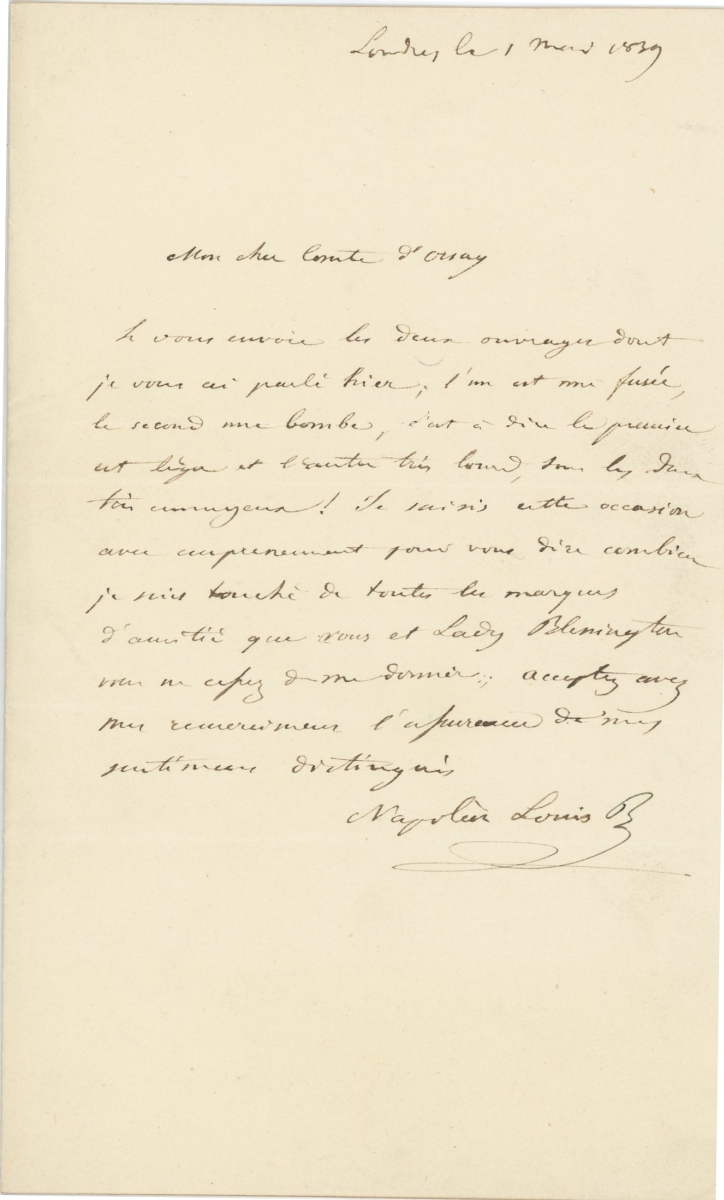 Londres le 1 Mai 1839
Mon cher Comte d'Orsay
Je vous envoie les deux ouvrages dont
je vous ai parlé hier; l'un est une fusée,
le second une bombe, c'est à dire le premier
est léger et l'autre très lourd, tous les deux
très ennuyeux! Je saisis cette occasion
avec empressement pour vous dire combien
je suis touché de toutes les marques
d'amitié que vous et Lady Blessington
vous ne cessez de me donner; acceptez avec
mes remercimens l'assurance de mes
sentimens distingués
Napoléon Louis B